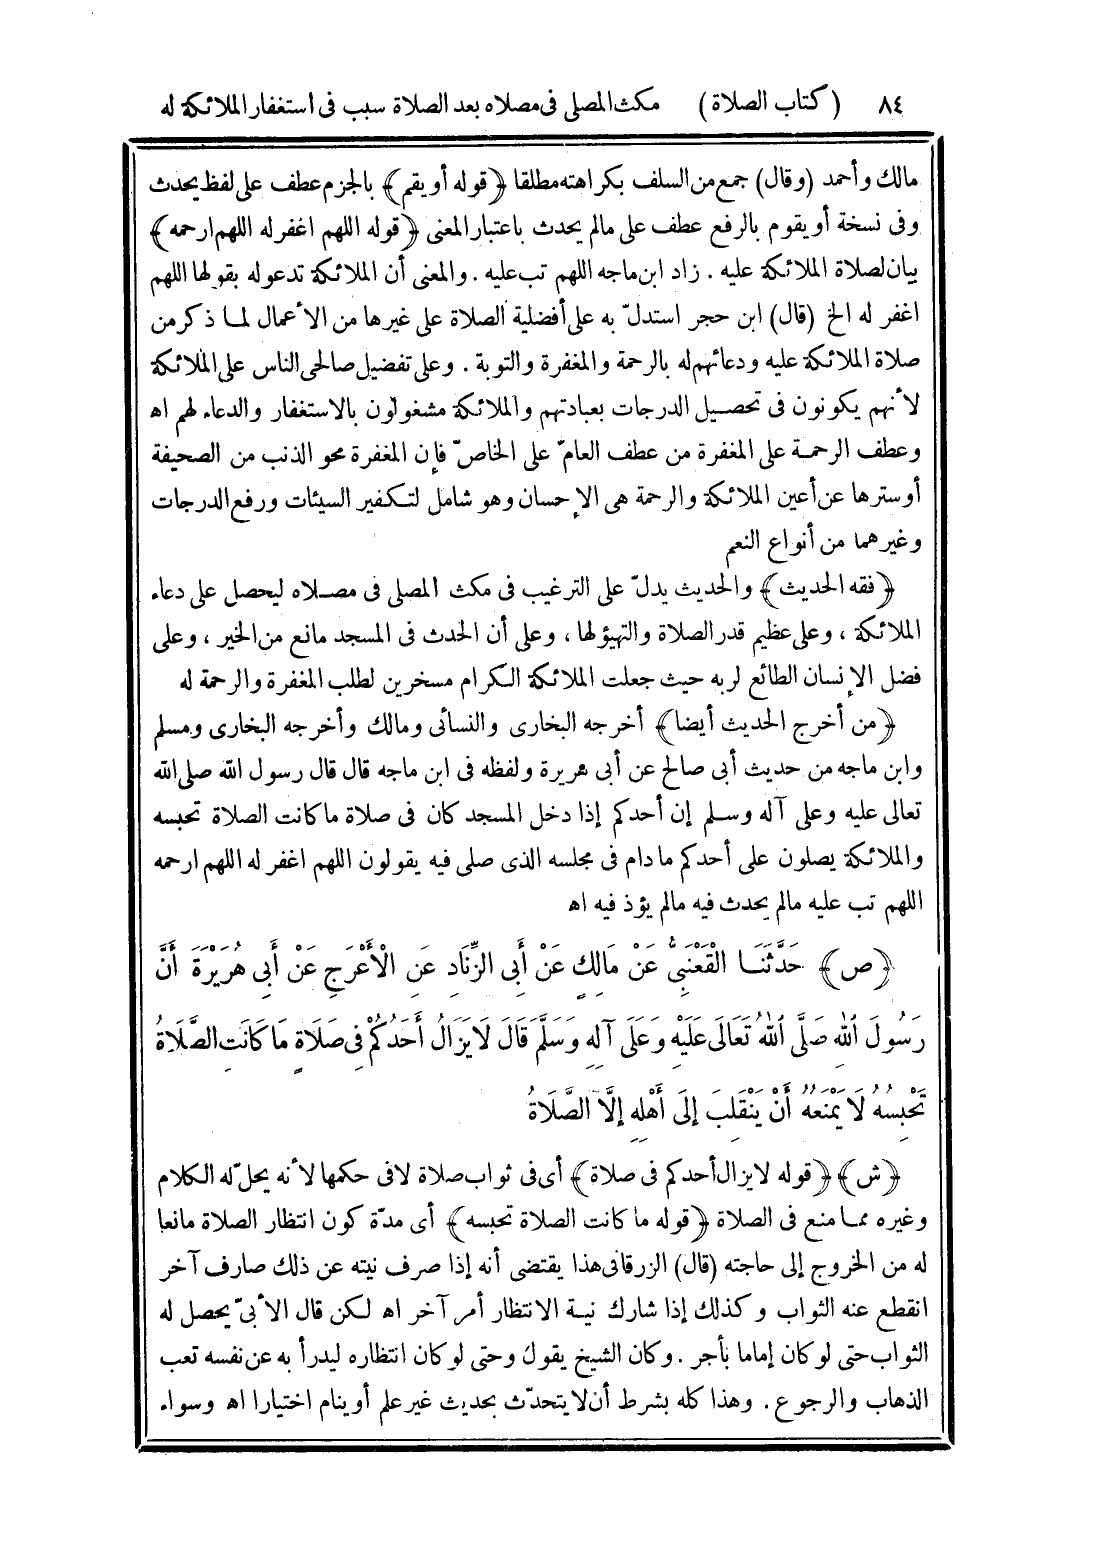 ٨٤ (كتاب الصلاة) مكث المصلى فى مصلاه بعد الصلاة سبب فى استغفار الملائكة له
مالك وأحمد (وقال) جمع من السلف بكراهته مطلقا ﴿قوله أو يقم﴾ بالجزم عطف على لفظ يحدث
وفى نسخة أو يقوم بالرفع عطف على مالم يحدث باعتبار المعنى ﴿قوله اللهم اغفر له اللهم ارحمه﴾
بيان لصلاة الملائكة عليه . زاد ابن ماجه اللهم تب عليه . والمعنى أن الملائكة تدعو له بقولها اللهم
اغفر له الخ (قال) ابن حجر استدلّ به على أفضلية الصلاة على غيرها من الأعمال لما ذكر من
صلاة الملائكة عليه ودعائهم له بالرحمة والمغفرة والتوبة . وعلى تفضيل صالحى الناس على الملائكة
لأنهم يكونون فى تحصيل الدرجات بعبادتهم والملائكة مشغولون بالاستغفار والدعاء لهم اه
وعطف الرحمة على المغفرة من عطف العامّ على الخاصّ فإن المغفرة محو الذنب من الصحيفة
أو سترها عن أعين الملائكة والرحمة هى الإحسان وهو شامل لتكفير السيئات ورفع الدرجات
وغيرهما من أنواع النعم
﴿فقه الحديث﴾ والحديث يدلّ على الترغيب فى مكث المصلى فى مصلاه ليحصل على دعاء
الملائكة ، وعلى عظيم قدر الصلاة والتهيؤ لها ، وعلى أن الحدث فى المسجد مانع من الخير ، وعلى
فضل الإنسان الطائع لربه حيث جعلت الملائكة الكرام مسخرين لطلب المغفرة والرحمة له
﴿من أخرج الحديث أيضا﴾ أخرجه البخارى والنسائى ومالك وأخرجه البخارى ومسلم
وابن ماجه من حديث أبى صالح عن أبى هريرة ولفظه فى ابن ماجه قال قال رسول الله صلى الله
تعالى عليه وعلى آله وسلم إن أحدكم إذا دخل المسجد كان فى صلاة ما كانت الصلاة تحبسه
والملائكة يصلون على أحدكم مادام فى مجلسه الذى صلى فيه يقولون اللهم اغفر له اللهم ارحمه
اللهم تب عليه مالم يحدث فيه مالم يؤذ فيه اه
﴿ص﴾ حَدَّثَنَا الْقَعْنَبِىُّ عَنْ مَالِكٍ عَنْ أَبِى الزِّنَادِ عَنِ الْأَعْرَجِ عَنْ أَبِى هُرَيْرَةَ أَنَّ
رَسُولَ اللهِ صَلَّى اللهُ تَعَالَى عَلَيْهِ وَعَلَى آلِهِ وَسَلَّمَ قَالَ لَا يَزَالُ أَحَدُكُمْ فِى صَلَاةٍ مَا كَانَتِ الصَّلَاةُ
تَحْبِسُهُ لَا يَمْنَعُهُ أَنْ يَنْقَلِبَ إِلَى أَهْلِهِ إِلَّا الصَّلَاةُ
﴿ش﴾ ﴿قوله لا يزال أحدكم فى صلاة﴾ أى فى ثواب صلاة لا فى حكمها لأنه يحلّ له الكلام
وغيره مما منع فى الصلاة ﴿قوله ما كانت الصلاة تحبسه﴾ أى مدّة كون انتظار الصلاة مانعا
له من الخروج إلى حاجته (قال) الزرقانى هذا يقتضى أنه إذا صرف نيته عن ذلك صارف آخر
انقطع عنه الثواب وكذلك إذا شارك نية الانتظار أمر آخر اه لكن قال الأبىّ يحصل له
الثواب حتى لو كان إماما بأجر . وكان الشيخ يقول وحتى لو كان انتظاره ليدرأ به عن نفسه تعب
الذهاب والرجوع . وهذا كله بشرط أن لا يتحدّث بحديث غير علم أو ينام اختيارا اه وسواء